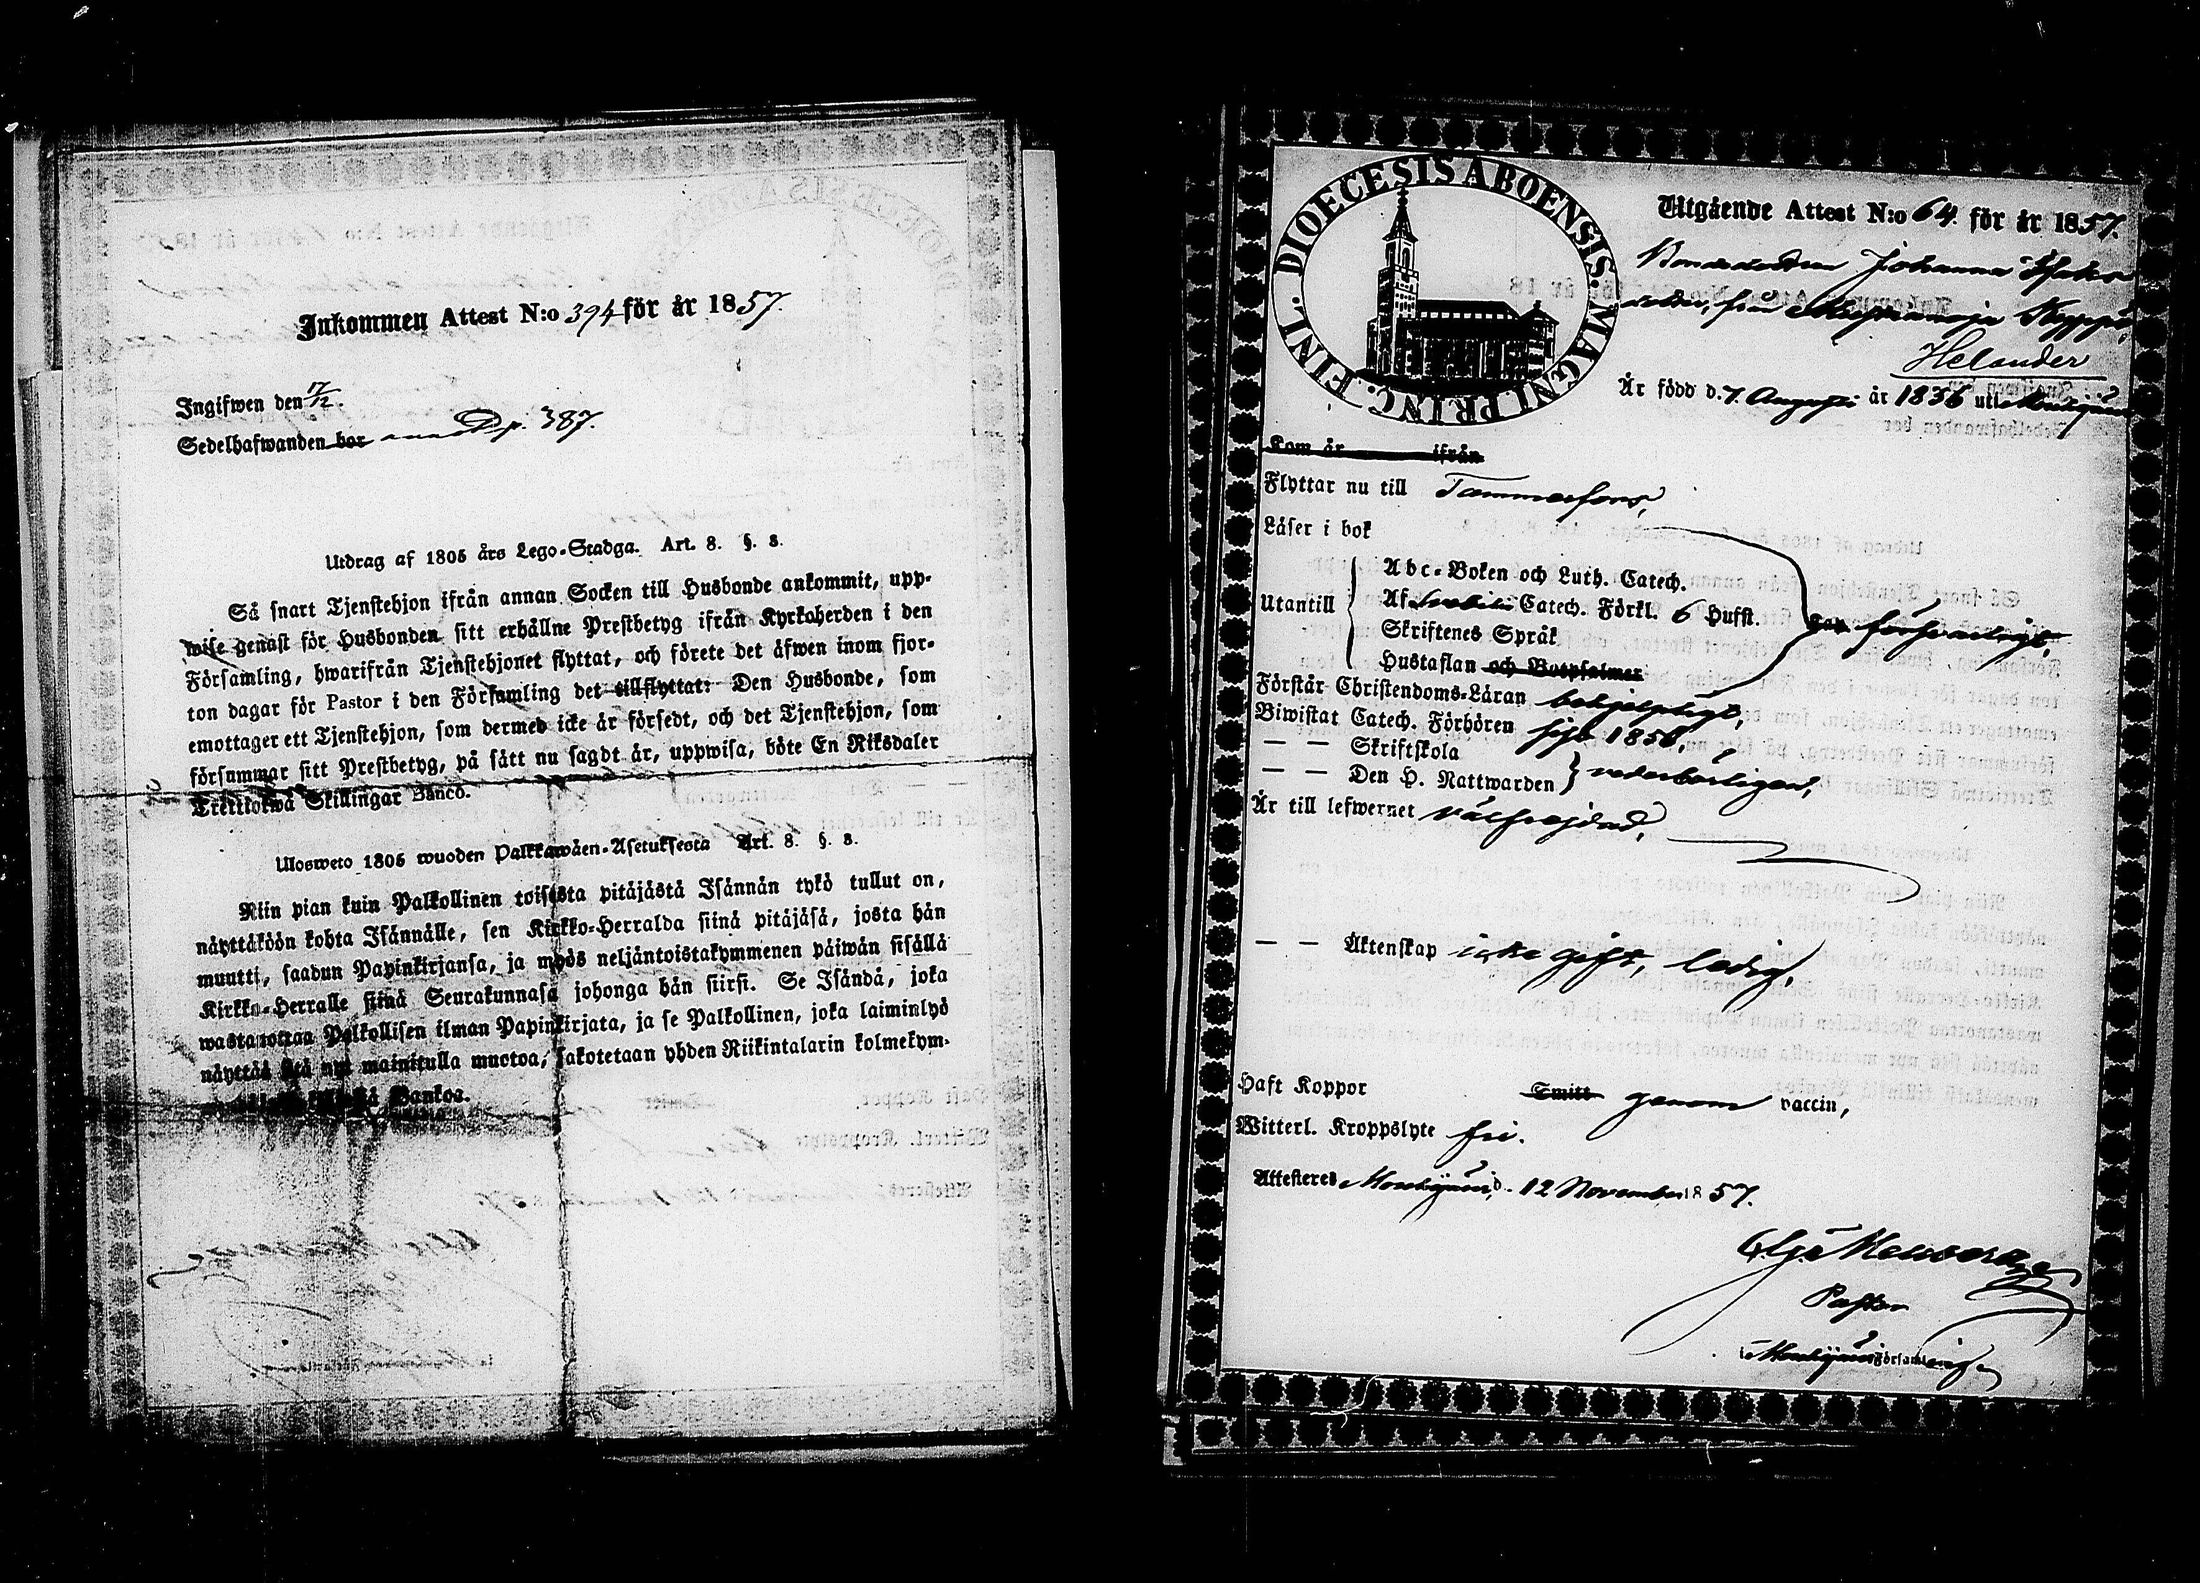 Inkommen Attest N:o 394 för år 1857.
Ingifwen den 17/12.
Sedelhafwanden bor D p. 387.
Utdrag af 1805 års Lego-Stadga. Art. 8. §. 8.
Så snart Tjenstehjon ifrån annan Socken till Husbonde ankommit, upp-
wise genast för Husbonden sitt erhållne Prestbetyg ifrån Kyrkoherden i den
Församling, hwarifrån Tjenstehjonet flyttat, och förete det äfwen inom fjor-
ton dagar för Pastor i den Församling det tillflyttat: Den Husbonde, som
emottager ett Tjenstehjon, som dermed icke är försedt, och det Tjenstehjon, som
försummar sitt Prestbetyg, på sätt nu sagdt är, uppwisa, böte En Riksdaler
Trettiotwå Skillingar Banco.
Ulosweto 1805 wuoden Palkkawäen-Asetuksesta Art. 8. §. 8.
Niin pian kuin Palkollinen toisesta pitäjästä Isännän tykö tullut on,
näyttäköön kohta Isännälle, sen Kirkko-Herralda siinä pitäjäsä, josta hän
muutti, saadun Papinkirjansa, ja myös neljäntoistakymmenen päiwän sisällä
Kirkko-Herralle siinä Seurakunnasa johonga hän siirsi. Se Isändä, joka
wastanottaa Palkollisen ilman Papinkirjata, ja se Palkollinen, joka laiminlyö
näyttää sitä nyt mainitulla muotoa, sakotetaan yhden Riikintalarin kolmekym-
Bankoa.
DIOECESIS ABOENSIS. MAGNI PRINC. FINL.
Utgående Attest N:o 64 för år 1857.
Bondedottren Johanna
från Kyppö,
Helander
Är född d. 7 Augusti år 1836 uti
Kom år ifrån
Flyttar nu till Tammerfors,
Läser i bok
Abc-Boken och Luth. Catech.
Utantill Af Svebilii Catech. Förkl. 6 Hufst. försvarligt,
Skriftenes Språk
Hustaflan och Botpsalmer
Förstår Christendoms-Läran behjelpligt,
Biwistat Catech. Förhören 1856,
— — Skriftskola
— — Den H. Nattwarden } vederbörligen,
Är till lefwernet välfrejdad,
— — Äktenskap icke gift, ledig,
Haft Koppor Smitt genom vaccin,
Witterl. Kroppslyte fri.
Attesteras Mouhijärvi, d. 12 November 1857.
Pastor
i Mouhijärvi Församling